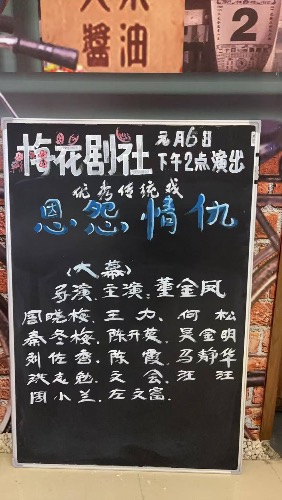 大木
醬油
2
梅花剧社
元月6日
下午2点演出
优秀传统戏
恩怨情仇
(大幕)
导演.主演:董金凤
周晓梅.王力.何松
秦冬梅.陈开英.吴金明
刘佐香.陈霞.马静华
洪志勉.文会.汪汪
周小兰.左文富.